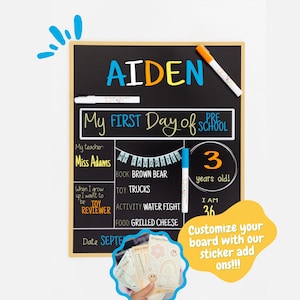 AIDEN
My FIRST Day of PRE SCHOOL
My teacher:
Miss Adams
When I grow up I want to be
TOY REVIEWER
BOOK: BROWN BEAR
TOY: TRUCKS
ACTIVITY: WATER FIGHT
FOOD: GRILLED CHEESE
3
years old!
I AM
36
Date SEPTE
Customize your
board with our
sticker add
ons!!!